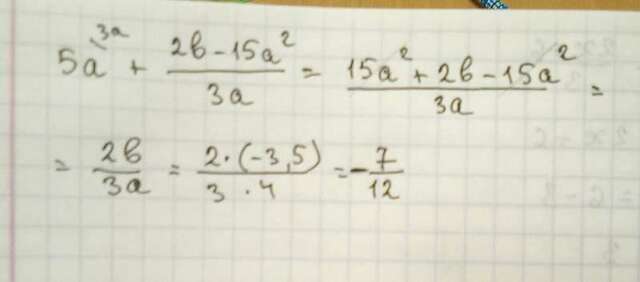 5a^{3a} + \frac{2b - 15a^2}{3a} = \frac{15a^2 + 2b - 15a^2}{3a} =
= \frac{2b}{3a} = \frac{2 \cdot (-3,5)}{3 \cdot 4} = -\frac{7}{12}